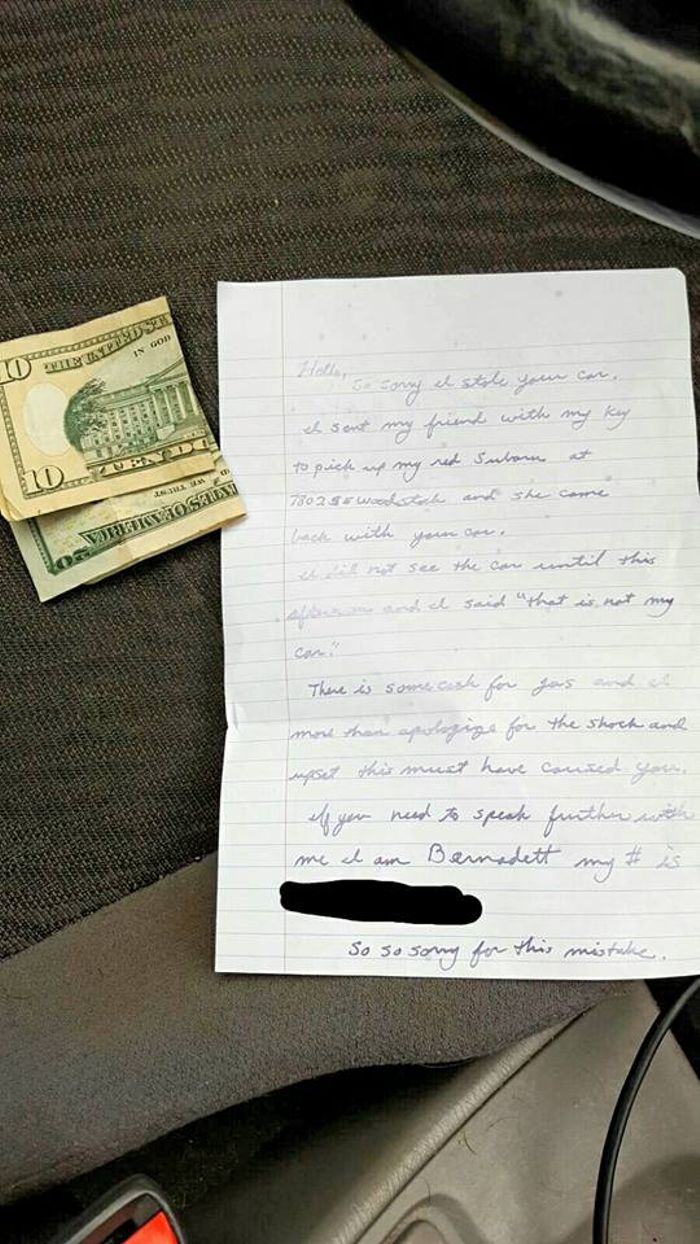 10
THE UNITED ST
IN GOD
10
TEN DO
WE TRUST
ATES OF AMERICA
20
Hello,
So sorry I stole your car.
I sent my friend with my key
to pick up my red Subaru at
7802 SE Woodstock and she came
back with your car.
I did not see the car until this
afternoon and I said "that is not my
car."
There is some cash for gas and I
more than apologize for the shock and
upset this must have caused you.
If you need to speak further with
me I am Bernadett my # is
So so sorry for this mistake.